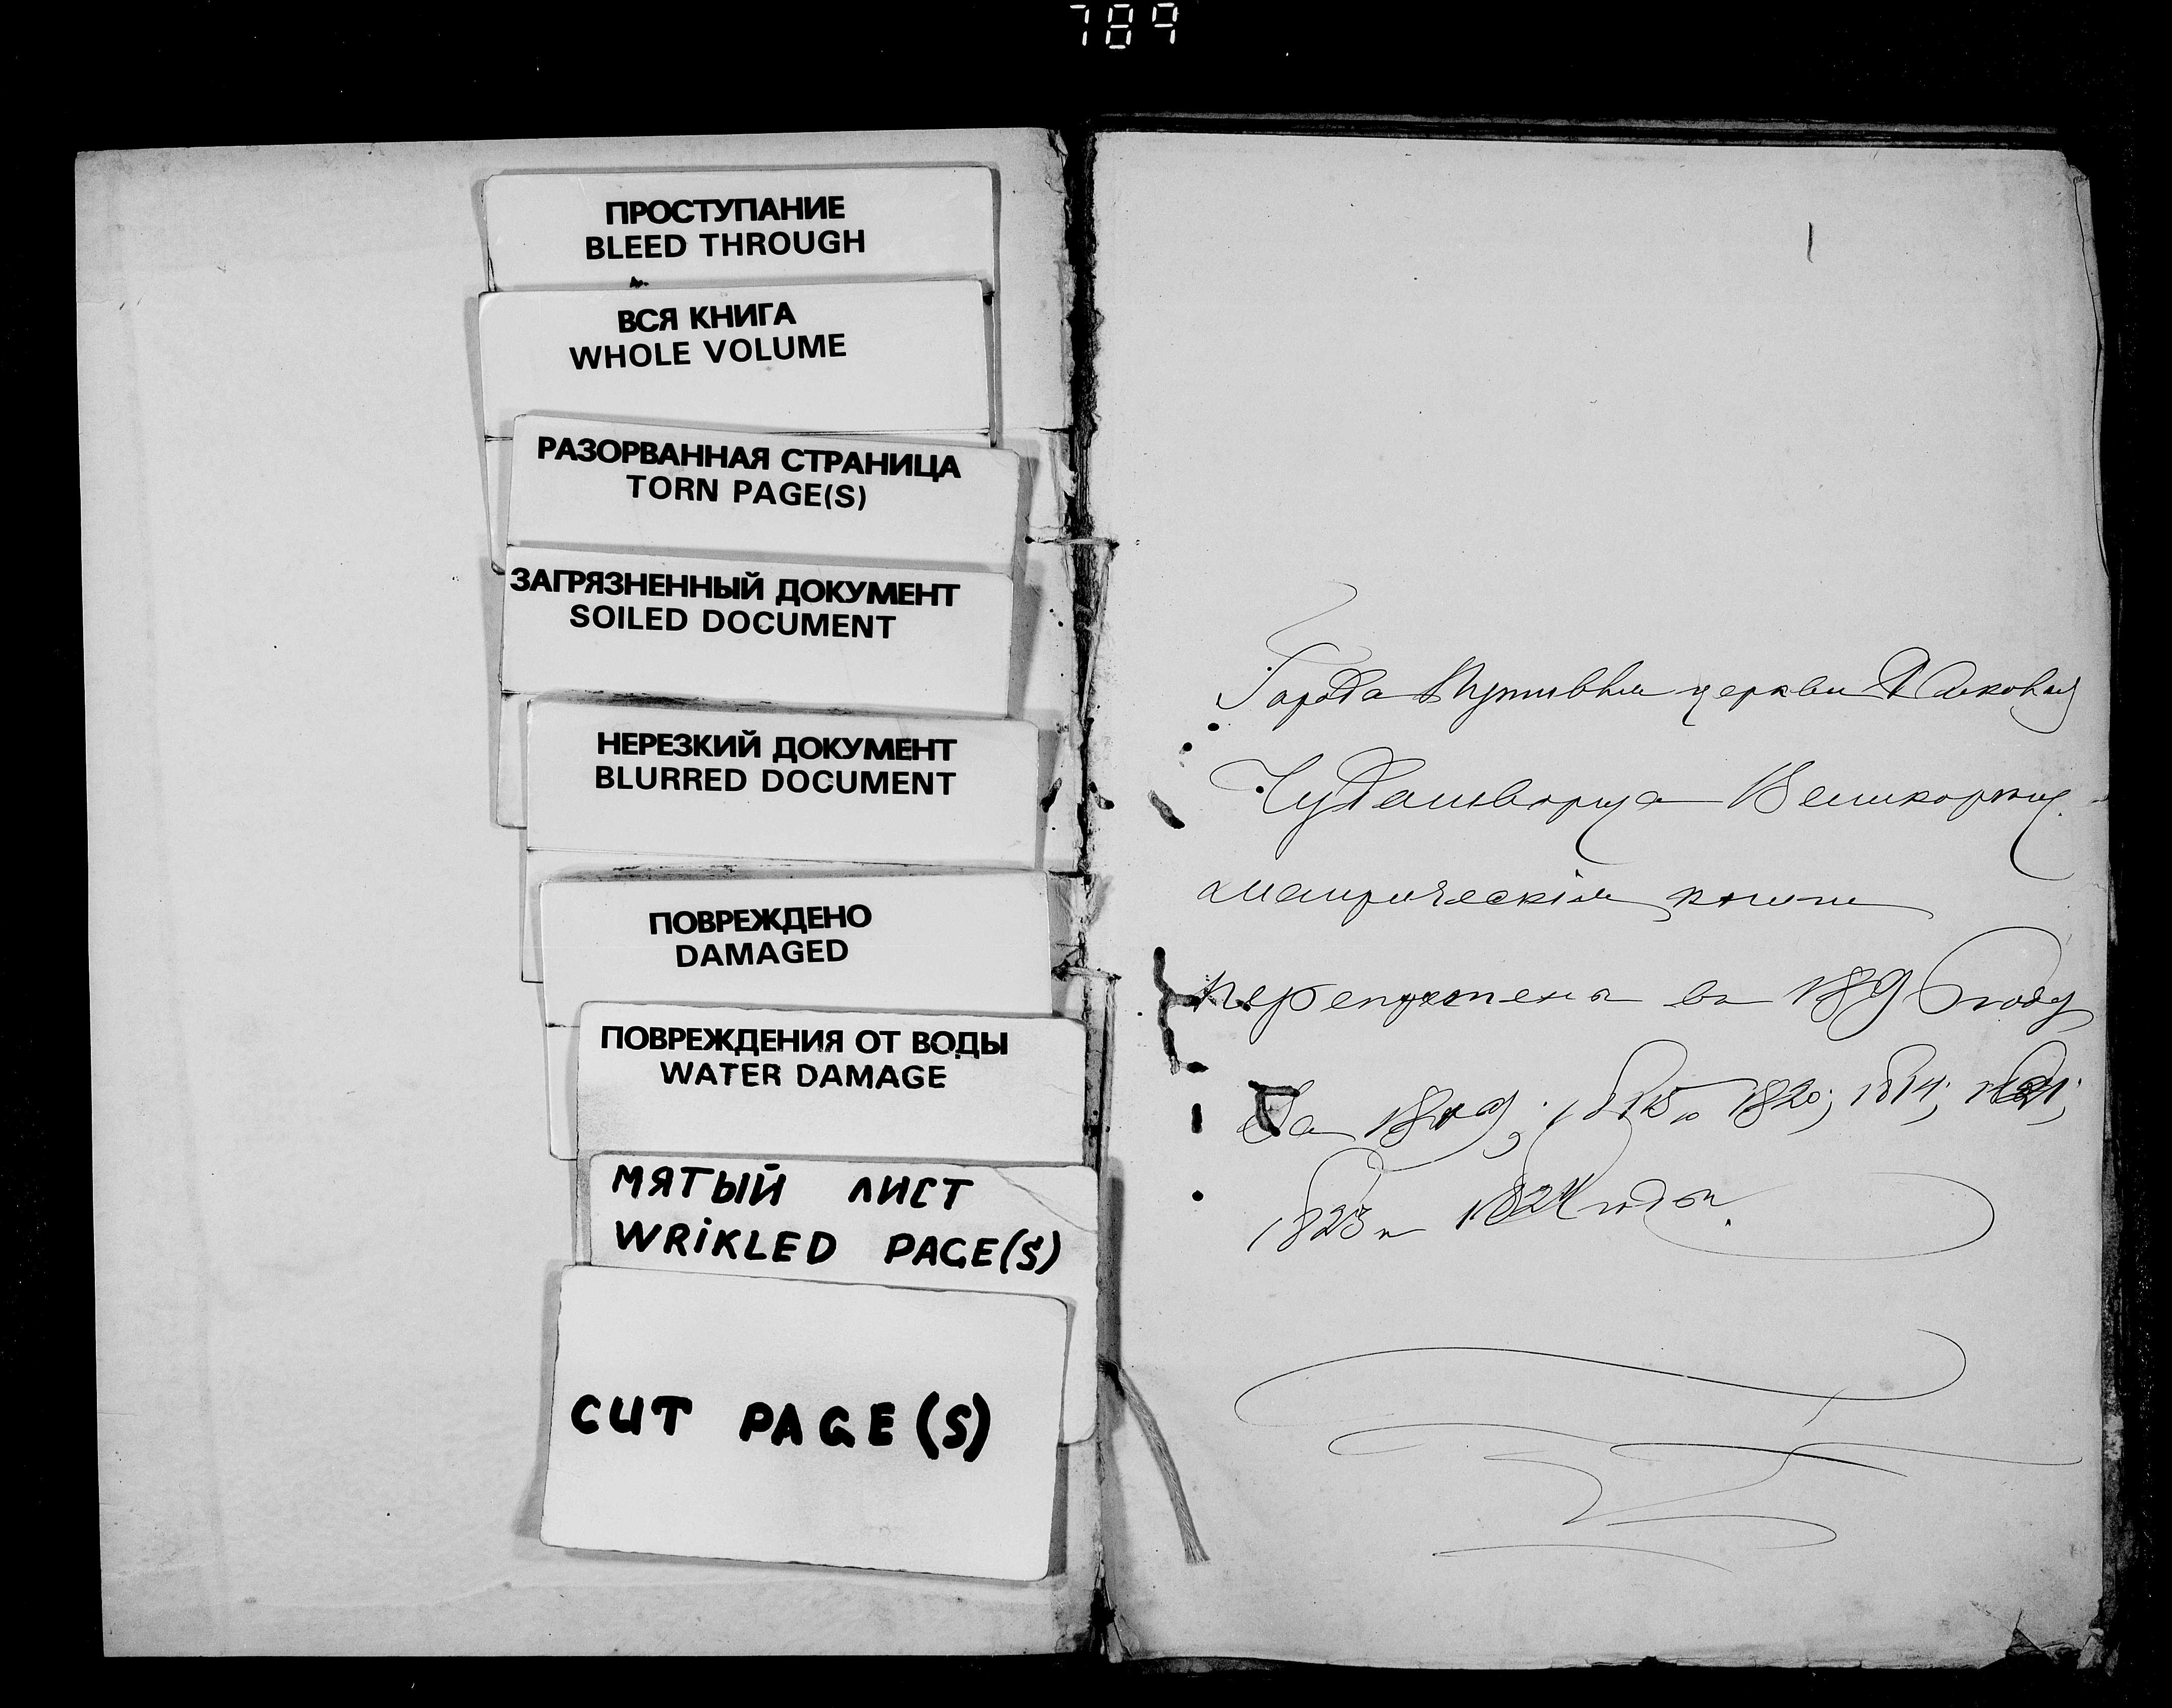 789
ПРОСТУПАНИЕ
BLEED THROUGH
ВСЯ КНИГА
WHOLE VOLUME
РАЗОРВАННАЯ СТРАНИЦА
TORN PAGE(S)
ЗАГРЯЗНЕННЫЙ ДОКУМЕНТ
SOILED DOCUMENT
НЕРЕЗКИЙ ДОКУМЕНТ
BLURRED DOCUMENT
ПОВРЕЖДЕНО
DAMAGED
ПОВРЕЖДЕНИЯ ОТ ВОДЫ
WATER DAMAGE
МЯТЫЙ ЛИСТ
WRiKLED PAGE(S)
CUT PAGE(S)
Города Путивля церкви Николая
Чудотворца
метрическія книги
въ 189 году
За 1820;
1823 и 1824 годы.